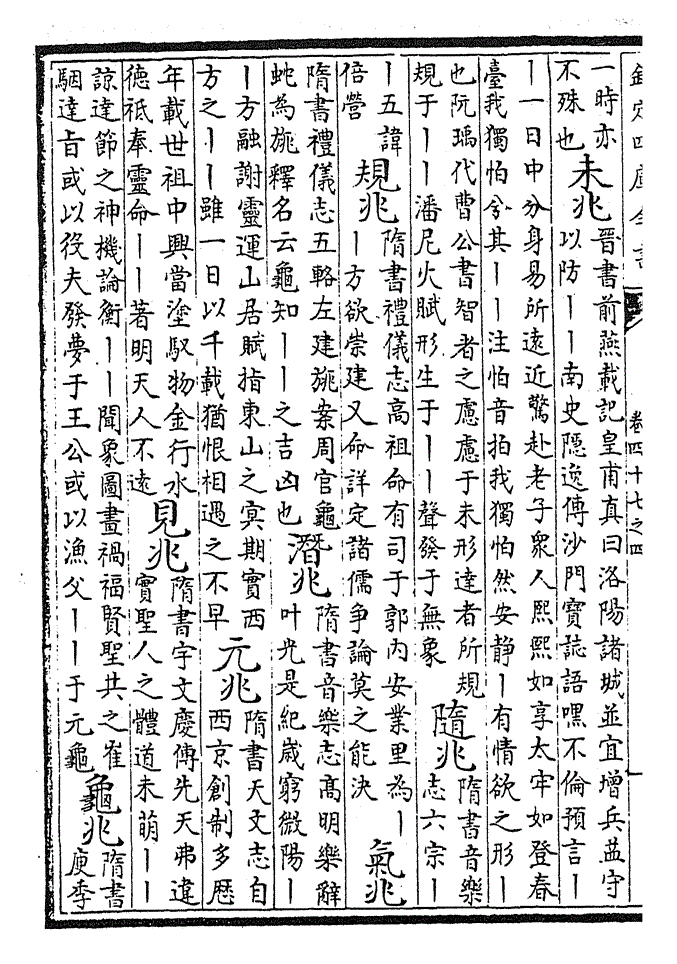 欽定四庫全書 卷四十七之四
一時亦
不殊也
未兆
晉書前燕載記皇甫真曰洛陽諸城並宜增兵益守
以防丨丨南史隱逸傳沙門寶誌語嘿不倫預言丨
丨一日中分身易所逺近驚赴老子衆人熙熙如享太牢如登春
臺我獨怕兮其丨丨注怕音拍我獨怕然安静丨有情欲之形丨
也阮瑀代曹公書智者之慮慮于未形達者所規
規于丨丨潘尼火賦形生于丨丨聲發于無象
隨兆
隋書音樂
志六宗丨
丨五諱
倍營
規兆
隋書禮儀志高祖命有司于郭内安業里為丨
丨方欲崇建又命詳定諸儒爭論莫之能決
氣兆
隋書禮儀志五輅左建旐案周官龜
蛇為旐釋名云龜知丨丨之吉凶也
潛兆
隋書音樂志髙明樂辭
叶光是紀歲窮微陽丨
丨方融謝靈運山居賦指東山之㝠期實西
方之丨丨雖一日以千載猶恨相遇之不早
元兆
隋書天文志自
西京創制多歴
年載世祖中興當塗馭物金行水
德祇奉靈命丨丨著明天人不逺
見兆
隋書宇文慶傳先天弗違
實聖人之體道未萌丨丨
諒達節之神機論衡丨丨聞象圖畫禍福賢聖共之崔
駰達旨或以役夫發夢于王公或以漁父丨丨于元龜
龜兆
隋書
庾季